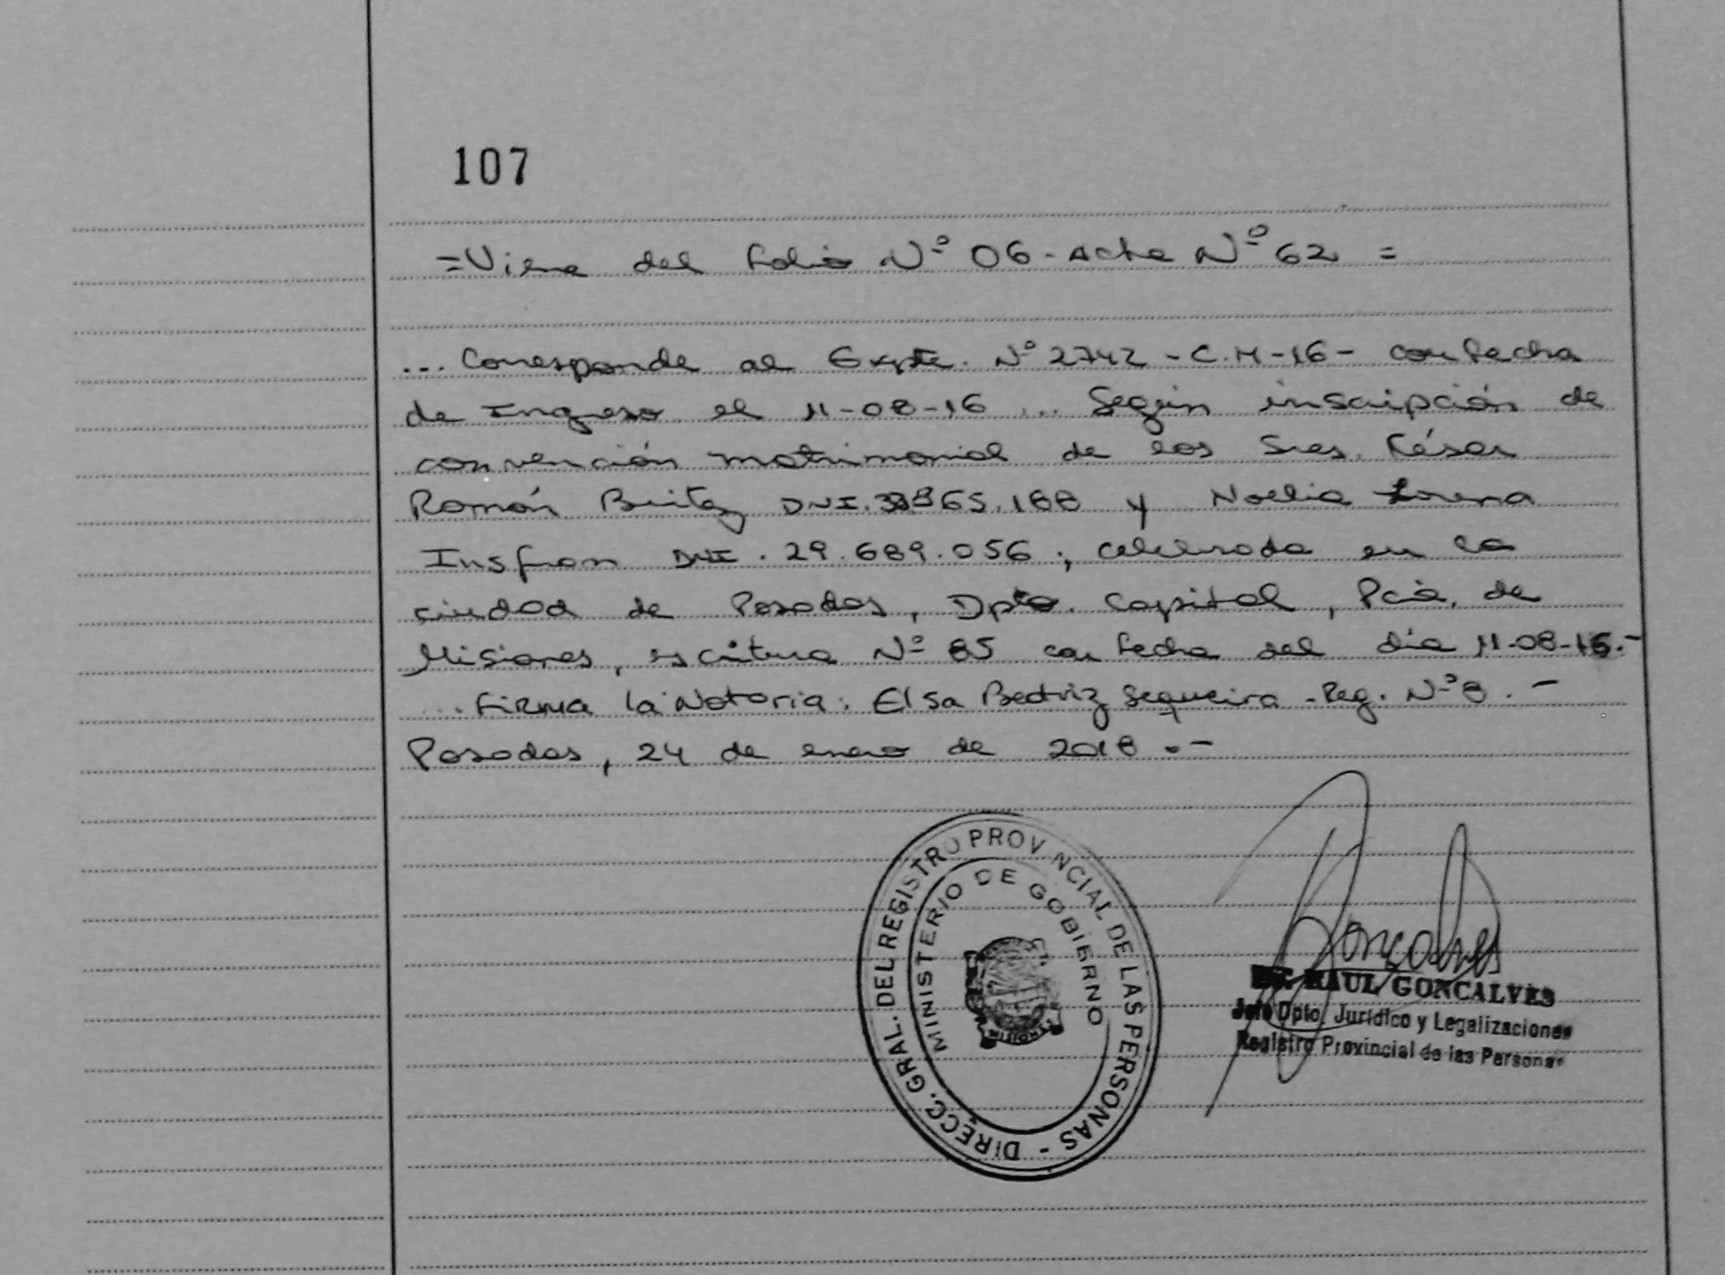 107
=Viene del folio Nº 06-Acta Nº 62 =
... Corresponde al Expte. Nº 2742 - C.M-16- con fecha
de Ingreso el 11-08-16 ... Según inscripción de
convención matrimonial de los Sres. César
Román Benitez DNI. 865.188 y Noelia Lorena
Insfran DNI. 29.689.056, celebrada en la
ciudad de Posadas, Dpto. Capital, Pcia. de
Misiones, escritura Nº 85 con fecha del día 11-08-16.-
... Firma la Notaria: Elsa Beatriz Sequeira - Reg. Nº 8. -
Posadas, 24 de enero de 2018 .-
DIRECC. GRAL. DEL REGISTRO PROVINCIAL DE LAS PERSONAS -
MINISTERIO DE GOBIERNO
MISIONES
Goncalves
Dr. RAUL GONCALVES
Jefe Dpto. Jurídico y Legalizaciones
Registro Provincial de las Personas